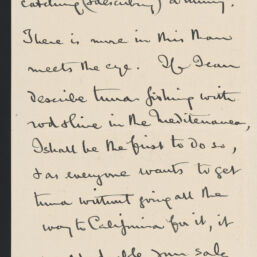 catching (& describing) a tunny.
There is more in this than
meets the eye. If I can
describe tuna fishing with
rod & line in the Mediterranean,
I shall be the first to do so,
& as everyone wants to get
tuna without going all the
way to California for it, it
double our sale